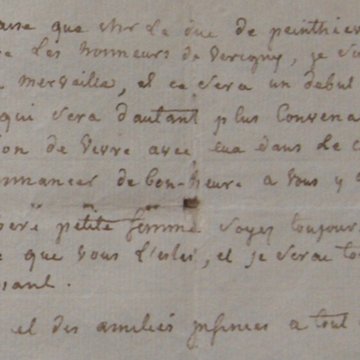 que chés le duc de penthièv
les honneurs de Vevigny, je s
merveille, et ce sera un debut
qui sera d'autant plus convena
on de vivre avec eux dans le c
mmancés de bon-heure a vous y
petite femme soyez toujours
que vous l'estes, et je serai to
sant.
et des amitiés infinies a tout